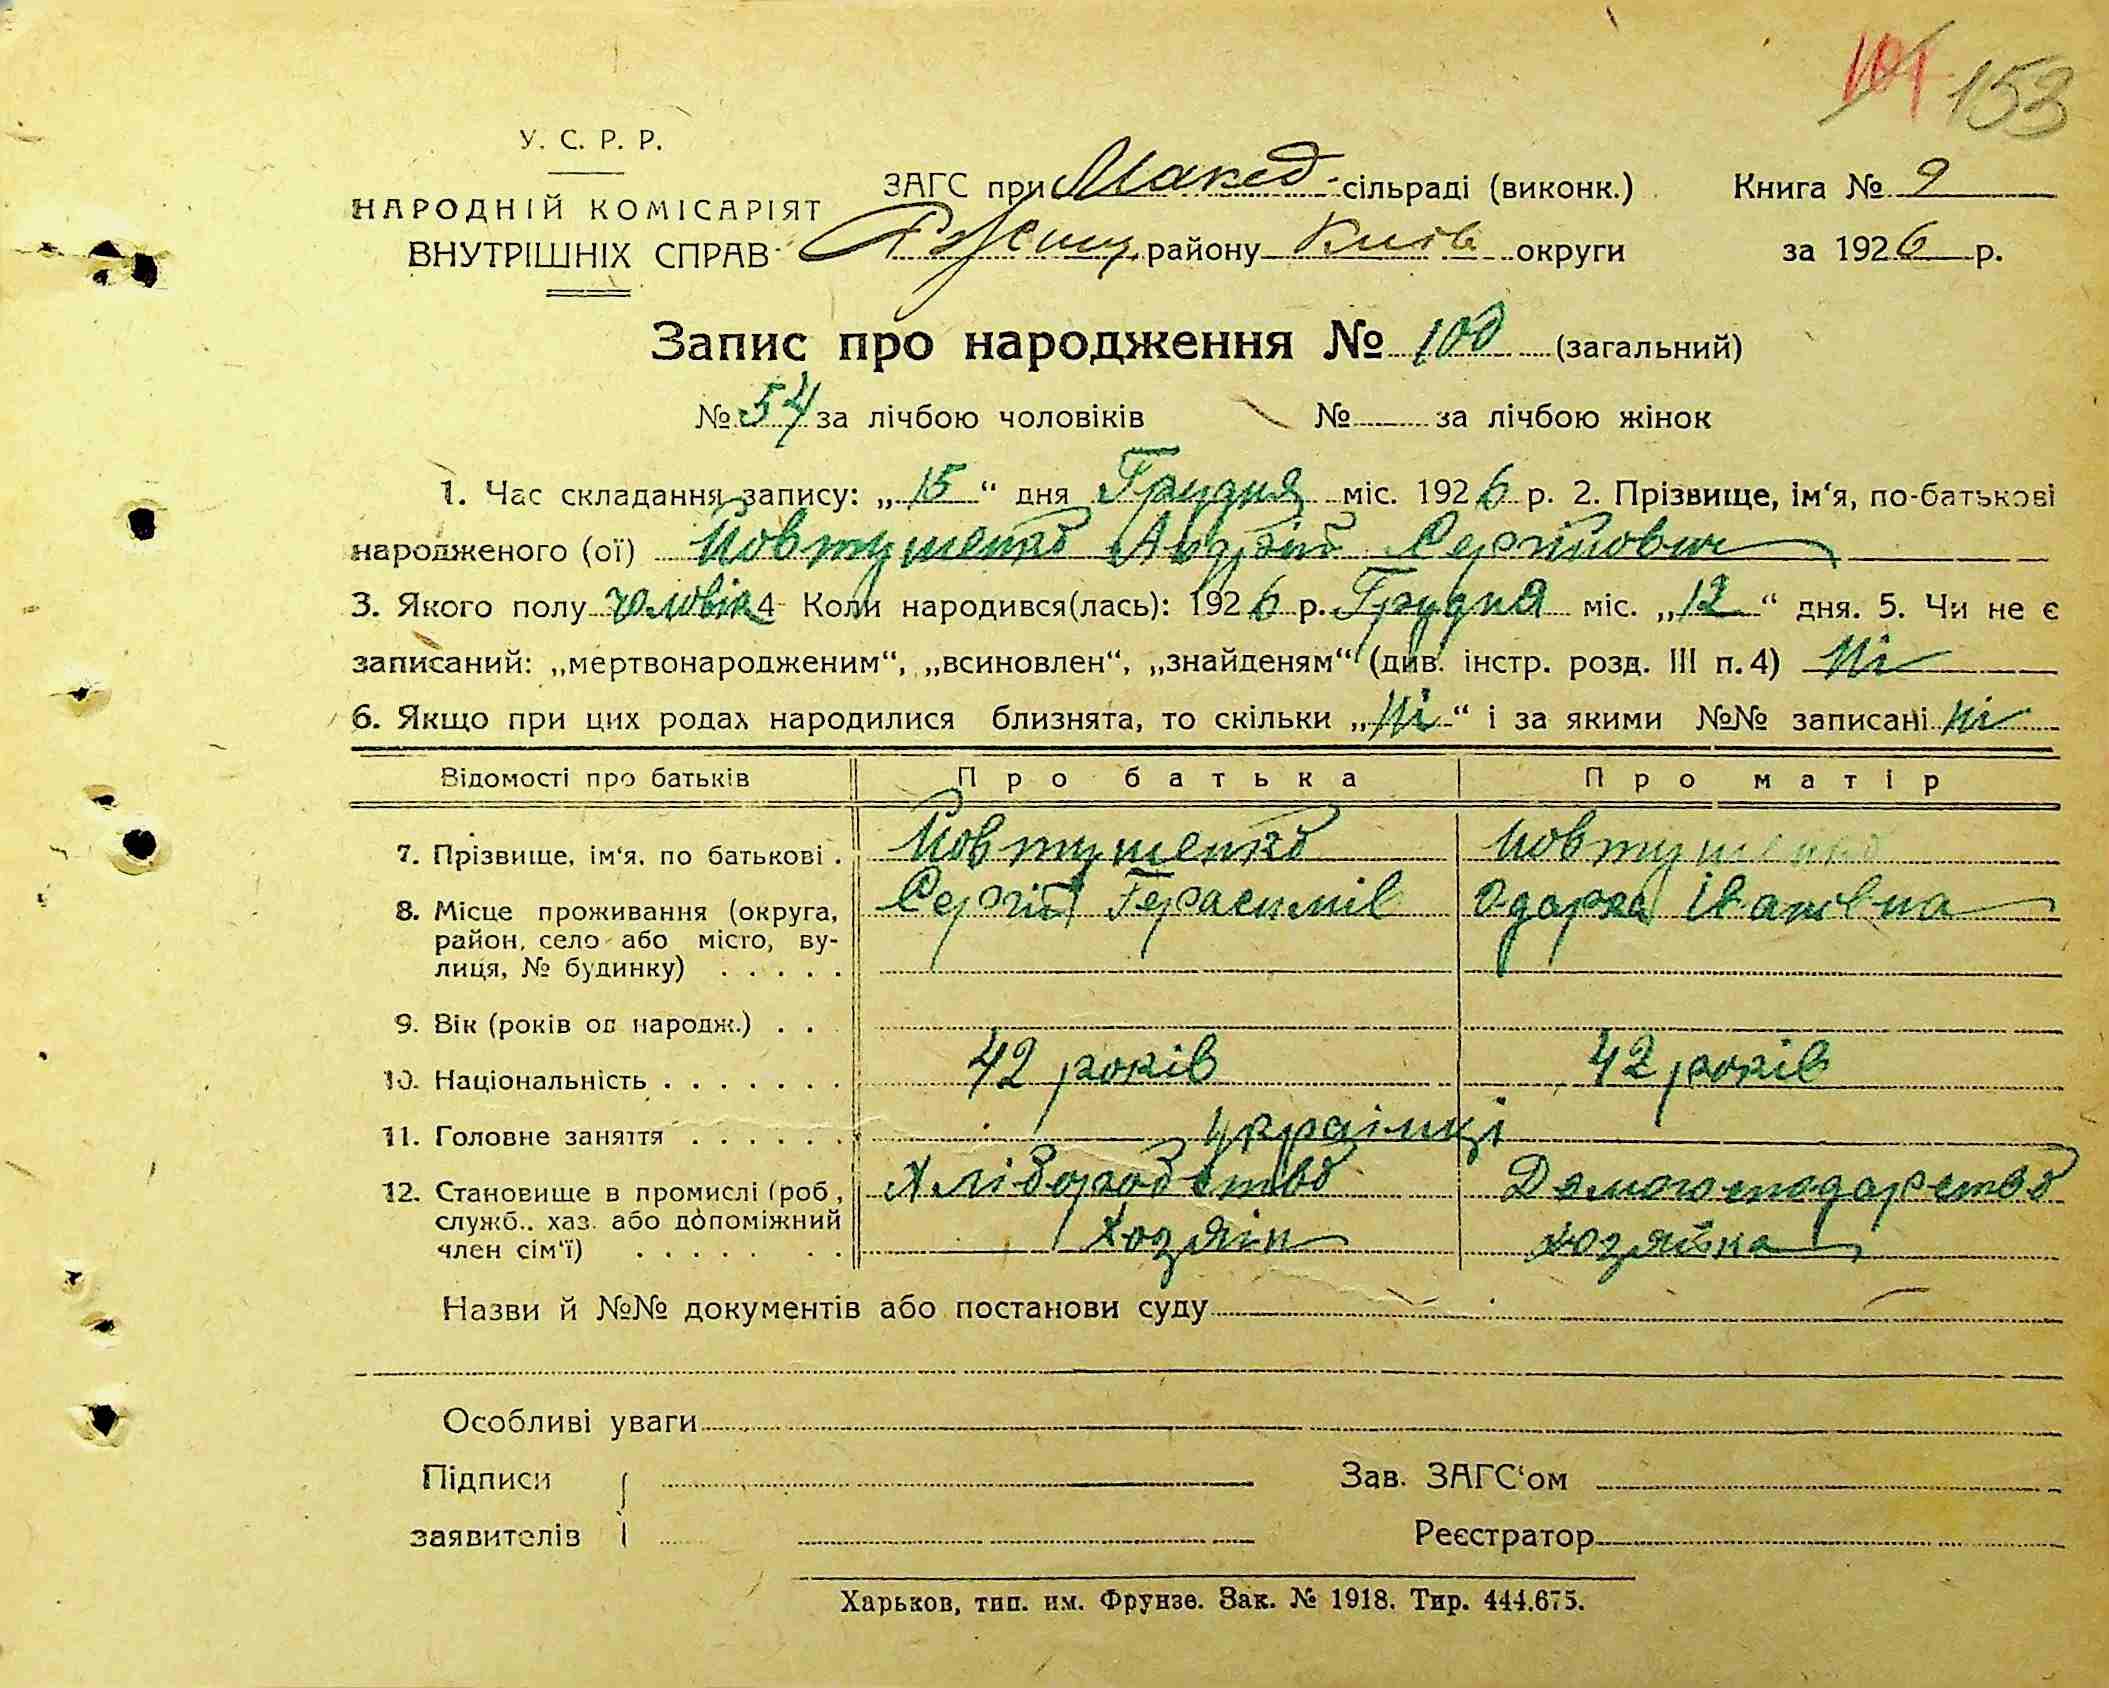 153
У. С. Р. Р.
НАРОДНІЙ КОМІСАРІЯТ
ВНУТРІШНІХ СПРАВ
ЗАГС при Макед. сільраді (виконк.) Книга № 9
Ржищ. району Київ округи за 1926 р.
Запис про народження № 100 (загальний)
№ 54 за лічбою чоловіків № за лічбою жінок
1. Час складання запису: „15“ дня Грудня міс. 1926 р. 2. Прізвище, ім‘я, по-батькові
народженого (ої) Йовтушенко Андрій Сергійович
3. Якого полу чоловік 4 Коли народився(лась): 1926 р. Грудня міс. „12“ дня. 5. Чи не є
записаний: „мертвонародженим“, „всиновлен“, „знайденям“ (див. інстр. розд. III п. 4) Ні
6. Якщо при цих родах народилися близнята, то скільки „Ні“ і за якими №№ записані Ні
Відомості про батьків Про батька Про матір
7. Прізвище, ім‘я, по батькові . Йовтушенко Йовтушенко
8. Місце проживання (округа, Сергій Герасимів Одарка Іванівна
район, село або місто, ву-
лиця, № будинку) . . . . .
9. Вік (років од народж.) . . .
10. Національність . . . . . . . 42 років 42 років
11. Головне заняття . . . . . . українці
12. Становище в промислі (роб., Хліборобство Домогосподарство
служб., хаз. або допоміжний Хозяїн хозяйка
член сім‘ї) . . . . . . .
Назви й №№ документів або постанови суду
Особливі уваги
Підписи Зав. ЗАГС‘ом
заявителів Реєстратор
Харьков, тип. им. Фрунзе. Зак. № 1918. Тир. 444.675.